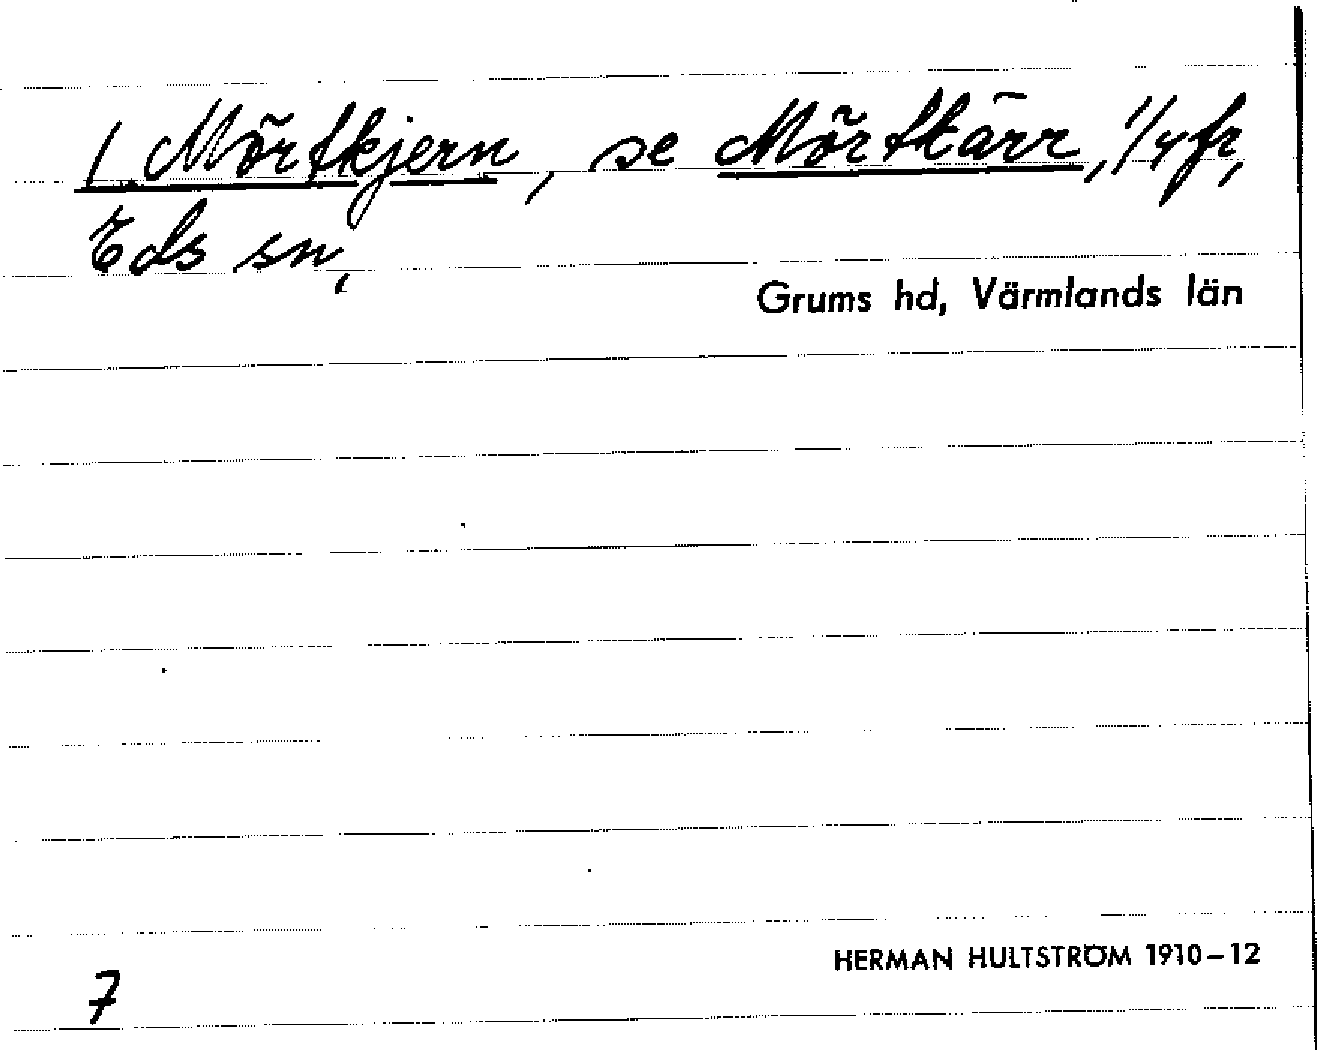 1. Mörtkjern, se Mörtkärr, 1/4 fr,
Eds sn,
Grums hd, Värmlands län
HERMAN HULTSTRÖM 1910–12
7